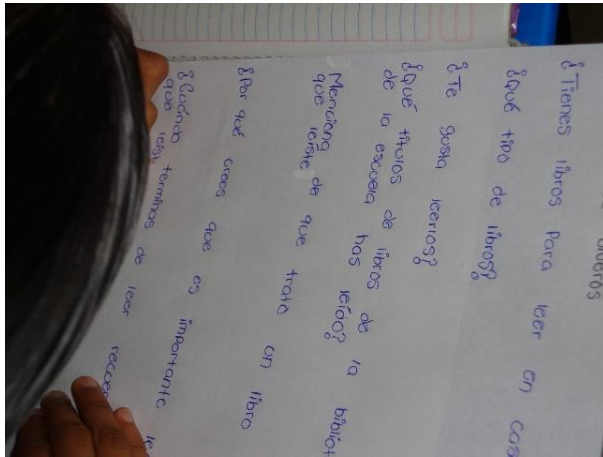 ¿Tienes libros para leer en cas
¿Qué tipo de libros?
¿Te gusta leerlos?
¿Qué títulos de libros de la bibliot
de la escuela has leído?
Menciona de que trato un libro
que leíste
¿Por qué crees que es importante le
¿Cuándo terminas de leer
que leíst